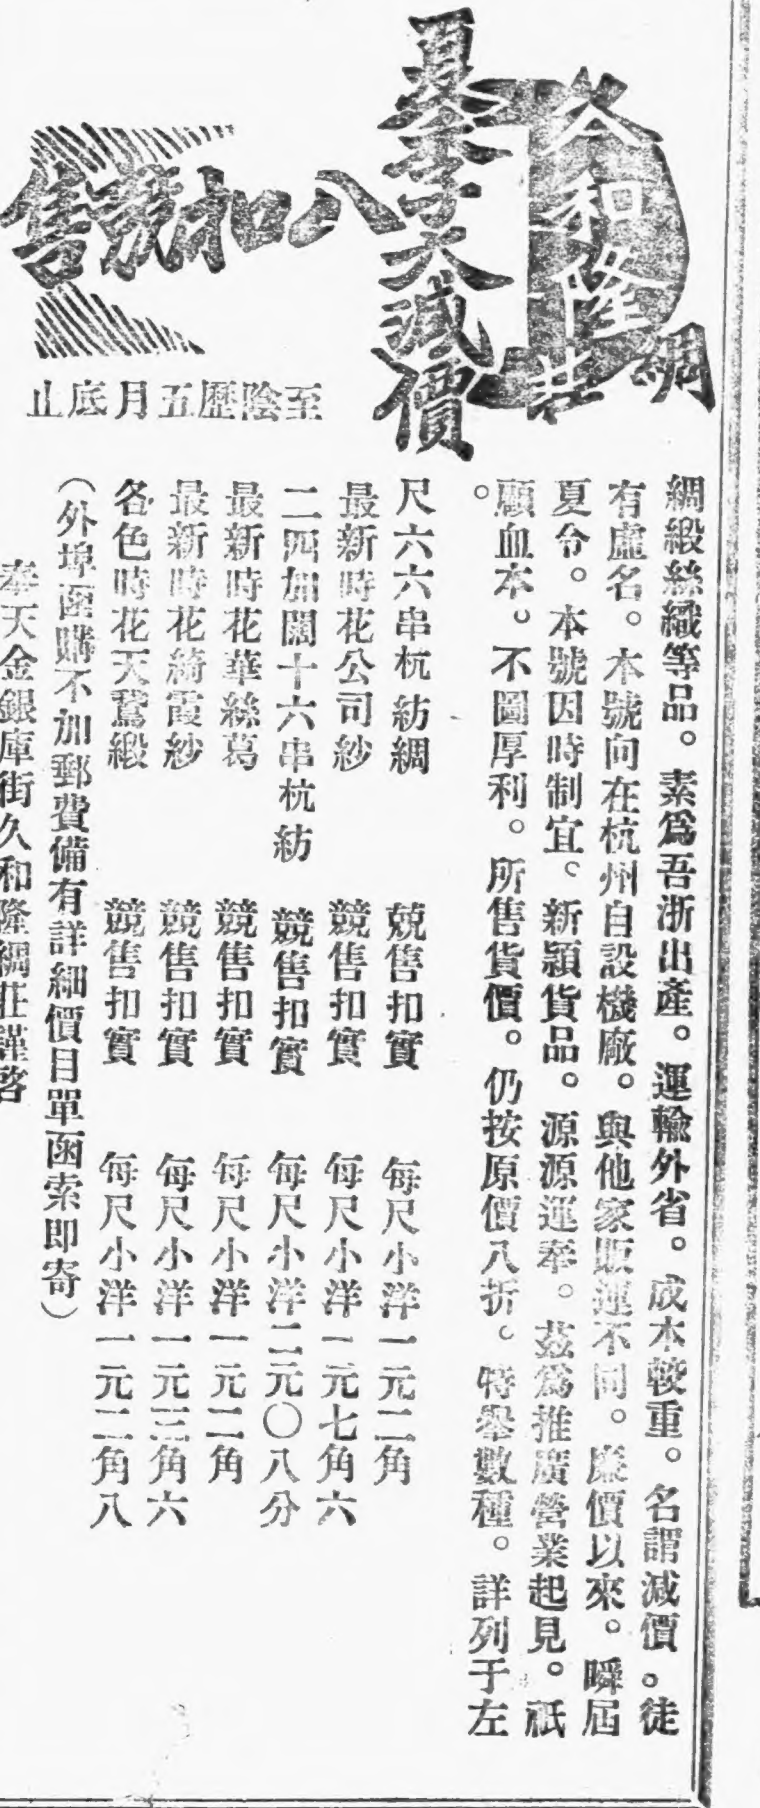 久和隆綢莊
夏季大減價
八扣競售
至陰歷五月底止
綢緞絲織等品。素爲吾浙出產。運輸外省。成本較重。名謂減價。徒
有虛名。本號向在杭州自設機廠。與他家販運不同。廉價以來。瞬屆
夏令。本號因時制宜。新穎貨品。源源運奉。茲爲推廣營業起見。祇
顧血本。不圖厚利。所售貨價。仍按原價八折。特舉數種。詳列于左
。
尺六六串杭紡綢 競售扣實 每尺小洋一元二角
最新時花公司紗 競售扣實 每尺小洋一元七角六
二四加闊十六串杭紡 競售扣實 每尺小洋二元〇八分
最新時花華絲葛 競售扣實 每尺小洋一元二角
最新時花綺霞紗 競售扣實 每尺小洋一元三角六
各色時花天鵞緞 競售扣實 每尺小洋一元二角八
（外埠函購不加郵費備有詳細價目單函索即寄）
奉天金銀庫街久和隆綢莊謹啓